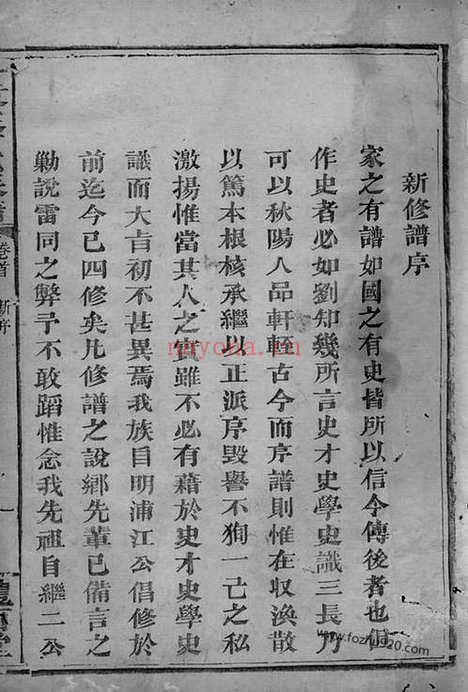 新修譜序
家之有譜如國之有史皆所以信今傳後者也但
作史者必如劉知幾所言史才史學史識三長乃
可以秋陽人品軒輊古今而序譜則惟在収渙散
以篤本根核承繼以正派序毀譽不狥一己之私
激揚惟當其人之實雖不必有藉於史才史學史
識而大㫖初不甚異焉我族自明浦江公倡修於
前迄今已四修矣凡修譜之說鄉先輩已備言之
勦說雷同之弊予不敢蹈惟念我先祖自繼二公
卷首 新序
一
堂
nayona.cn
www.fozhu920.com